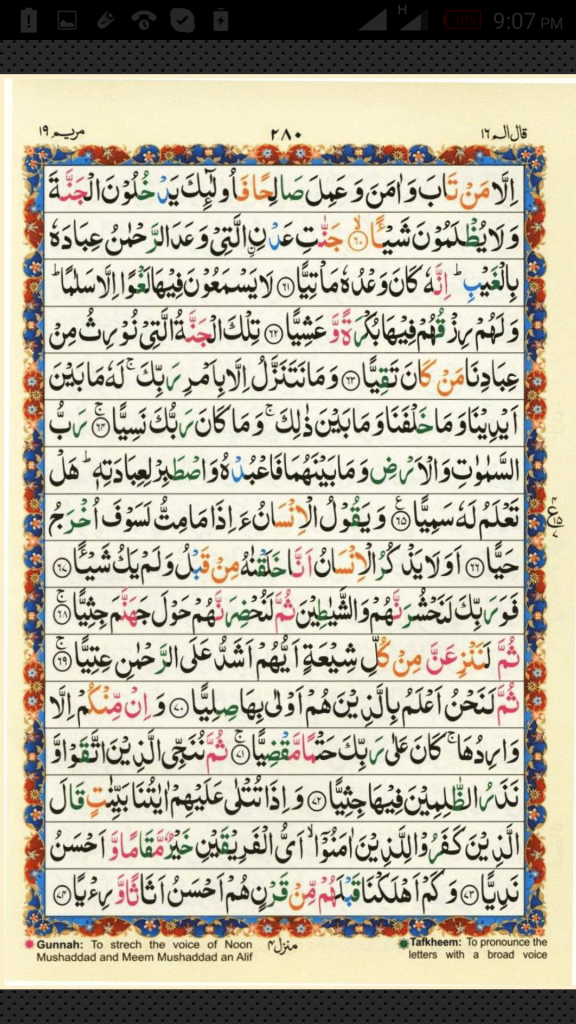 H
10%
9:07 PM
مريم ١٩
٢٨٠
قال الم ١٦
اِلَّا مَنْ تَابَ وَاٰمَنَ وَعَمِلَ صَالِحًا فَاُولٰٓئِكَ يَدْخُلُوْنَ الْجَنَّةَ
وَلَا يُظْلَمُوْنَ شَيْـًٔا ۙ‏﴿۶۰﴾ جَنّٰتِ عَدْنِ ۨالَّتِيْ وَعَدَ الرَّحْمٰنُ عِبَادَهٗ
بِالْغَيْبِ ؕ اِنَّهٗ كَانَ وَعْدُهٗ مَاْتِيًّا ﴿۶۱﴾ لَا يَسْمَعُوْنَ فِيْهَا لَغْوًا اِلَّا سَلٰمًا ؕ
وَلَهُمْ رِزْقُهُمْ فِيْهَا بُكْرَةً وَّعَشِيًّا ﴿۶۲﴾ تِلْكَ الْجَنَّةُ الَّتِيْ نُوْرِثُ مِنْ
عِبَادِنَا مَنْ كَانَ تَقِيًّا ﴿۶۳﴾ وَمَا نَتَنَزَّلُ اِلَّا بِاَمْرِ رَبِّكَ ۚ لَهٗ مَا بَيْنَ
اَيْدِيْنَا وَمَا خَلْفَنَا وَمَا بَيْنَ ذٰلِكَ ۚ وَمَا كَانَ رَبُّكَ نَسِيًّا ۚ﴿۶۴﴾ رَبُّ
السَّمٰوٰتِ وَالْاَرْضِ وَمَا بَيْنَهُمَا فَاعْبُدْهُ وَاصْطَبِرْ لِعِبَادَتِهٖ ؕ هَلْ
تَعْلَمُ لَهٗ سَمِيًّا ﴿۶۵﴾ وَيَقُوْلُ الْاِنْسَانُ ءَاِذَا مَا مِتُّ لَسَوْفَ اُخْرَجُ
حَيًّا ﴿۶۶﴾ اَوَلَا يَذْكُرُ الْاِنْسَانُ اَنَّا خَلَقْنٰهُ مِنْ قَبْلُ وَلَمْ يَكُ شَيْـًٔا ﴿۶۷﴾
فَوَرَبِّكَ لَنَحْشُرَنَّهُمْ وَالشَّيٰطِيْنَ ثُمَّ لَنُحْضِرَنَّهُمْ حَوْلَ جَهَنَّمَ جِثِيًّا ۚ﴿۶۸﴾
ثُمَّ لَنَنْزِعَنَّ مِنْ كُلِّ شِيْعَةٍ اَيُّهُمْ اَشَدُّ عَلَى الرَّحْمٰنِ عِتِيًّا ۚ﴿۶۹﴾
ثُمَّ لَنَحْنُ اَعْلَمُ بِالَّذِيْنَ هُمْ اَوْلٰى بِهَا صِلِيًّا ﴿۷۰﴾ وَاِنْ مِّنْكُمْ اِلَّا
وَارِدُهَا ۚ كَانَ عَلٰى رَبِّكَ حَتْمًا مَّقْضِيًّا ۚ﴿۷۱﴾ ثُمَّ نُنَجِّي الَّذِيْنَ اتَّقَوْا وَّ
نَذَرُ الظّٰلِمِيْنَ فِيْهَا جِثِيًّا ﴿۷۲﴾ وَاِذَا تُتْلٰى عَلَيْهِمْ اٰيٰتُنَا بَيِّنٰتٍ قَالَ
الَّذِيْنَ كَفَرُوْا لِلَّذِيْنَ اٰمَنُوْٓا ۙ اَيُّ الْفَرِيْقَيْنِ خَيْرٌ مَّقَامًا وَّاَحْسَنُ
نَدِيًّا ﴿۷۳﴾ وَكَمْ اَهْلَكْنَا قَبْلَهُمْ مِّنْ قَرْنٍ هُمْ اَحْسَنُ اَثَاثًا وَّرِءْيًا ﴿۷۴﴾
Gunnah: To strech the voice of Noon
Mushaddad and Meem Mushaddad an Alif
منزل ۴
Tafkheem: To pronounce the
letters with a broad voice